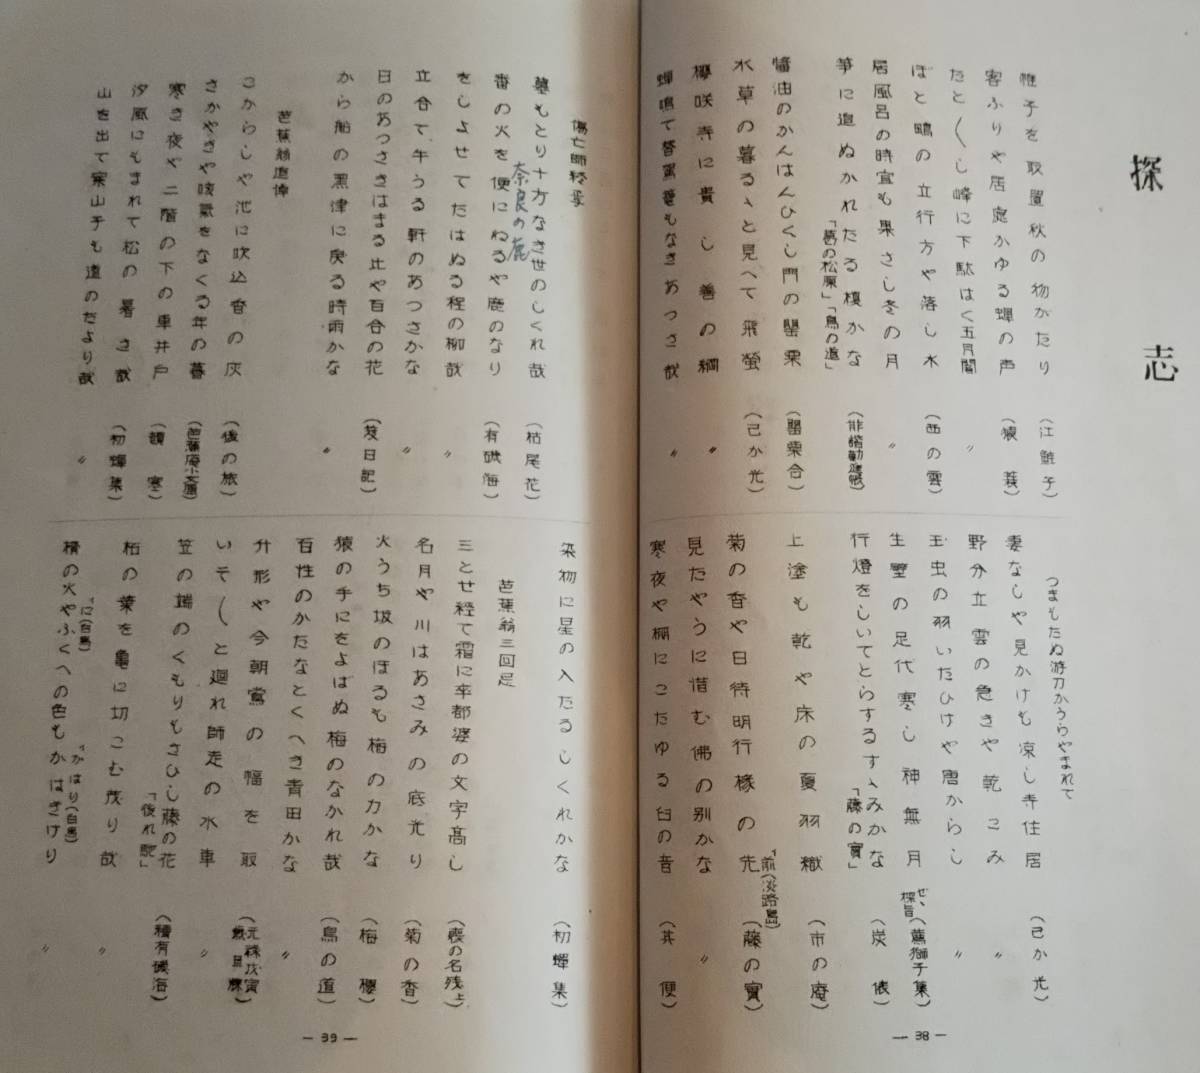 探志
帷子を取置秋の物がたり（江鮭子）
客ふりや居處かゆる蟬の声（猿蓑）
たと〱し峰に下駄はく五月闇　〃
ぼと鴫の立行方や落し水（西の雲）
居風呂の時宜も果さし冬の月　〃
笋に追ぬかれたる榎かな（俳諧勧進牒）
「葛の松原」「鳥の道」
醬油のかんはんひくし門の罌粟（罌粟合）
水草の暮るゝと見へて飛螢（己か光）
櫻咲寺に貴し善の綱　〃
蟬鳴て督駕籠もなきあつさ哉　〃
つまもたぬ游刀かうらやまれて
妻なしや見かけも凉し寺住居（己か光）
野分立雲の急きや乾こみ　〃
玉虫の羽いたひけや唐からし　〃
生壁の足代寒し神無月（薦獅子集）
ぜゝ探旨
行燈をしいてとらするすゝみかな（炭俵）
「藤の實」
上塗も乾や床の夏羽織（市の庵）
菊の香や日待明行椽の先（藤の實）
前（淡路島）
見たやうに惜む佛の別かな　〃
寒夜や棚にこたゆる臼の音（其便）
— 38 —
傷亡師終焉
墓もとり十方なき世のしくれ哉（枯尾花）
奈良の鹿
番の火を便にねるや鹿のなり（有磯海）
をしよせてたはぬる程の柳哉　〃
立合て牛うる軒のあつさかな　〃
日のあつさきはまる辻や百合の花（笈日記）
から船の黒津に戻る時雨かな　〃
芭蕉翁追悼
こからしや池に吹込香の灰（後の旅）
さかやきや咳氣をなくる年の暮（芭蕉庵小文庫）
寒き夜や二階の下の車井戸（韻塞）
汐風にもまれて松の暑さ哉（初蟬集）
山を出て案山子も道のたより哉　〃
染物に星の入たるしくれかな（初蟬集）
芭蕉翁三回忌
三とせ経て霜に卒都婆の文字髙し（喪の名残上）
名月や川はあさみの底光り（菊の香）
火うち坂のほるも梅の力かな（梅櫻）
猿の手にをよばぬ梅のなかれ哉（鳥の道）
百性のかたなとくへき青田かな　〃
升形や今朝鶯の幅を取（元禄戊寅歳旦牒）
いそ〱と廻れ師走の水車　〃
笠の端のくもりもさひし藤の花（續有磯海）
「後れ馳」
柘の葉を亀に切こむ茂り哉　〃
積の火やふくへの色もかはきけり　〃
に（白馬）
かはり（白馬）
— 39 —